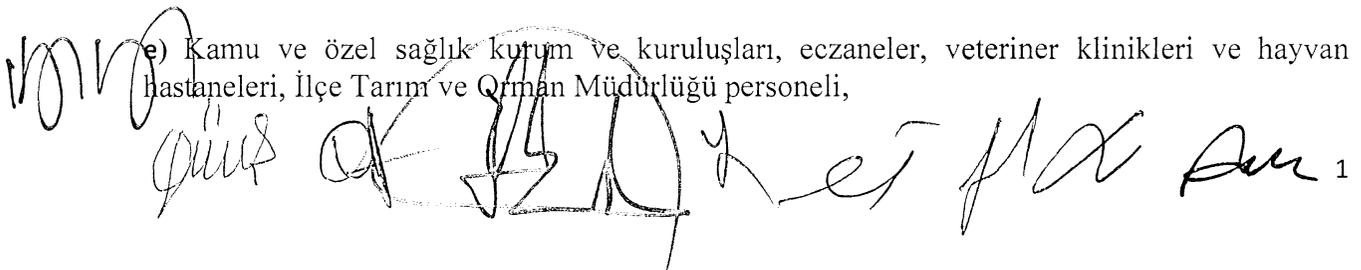 e) Kamu ve özel sağlık kurum ve kuruluşları, eczaneler, veteriner klinikleri ve hayvan
hastaneleri, İlçe Tarım ve Orman Müdürlüğü personeli,
1